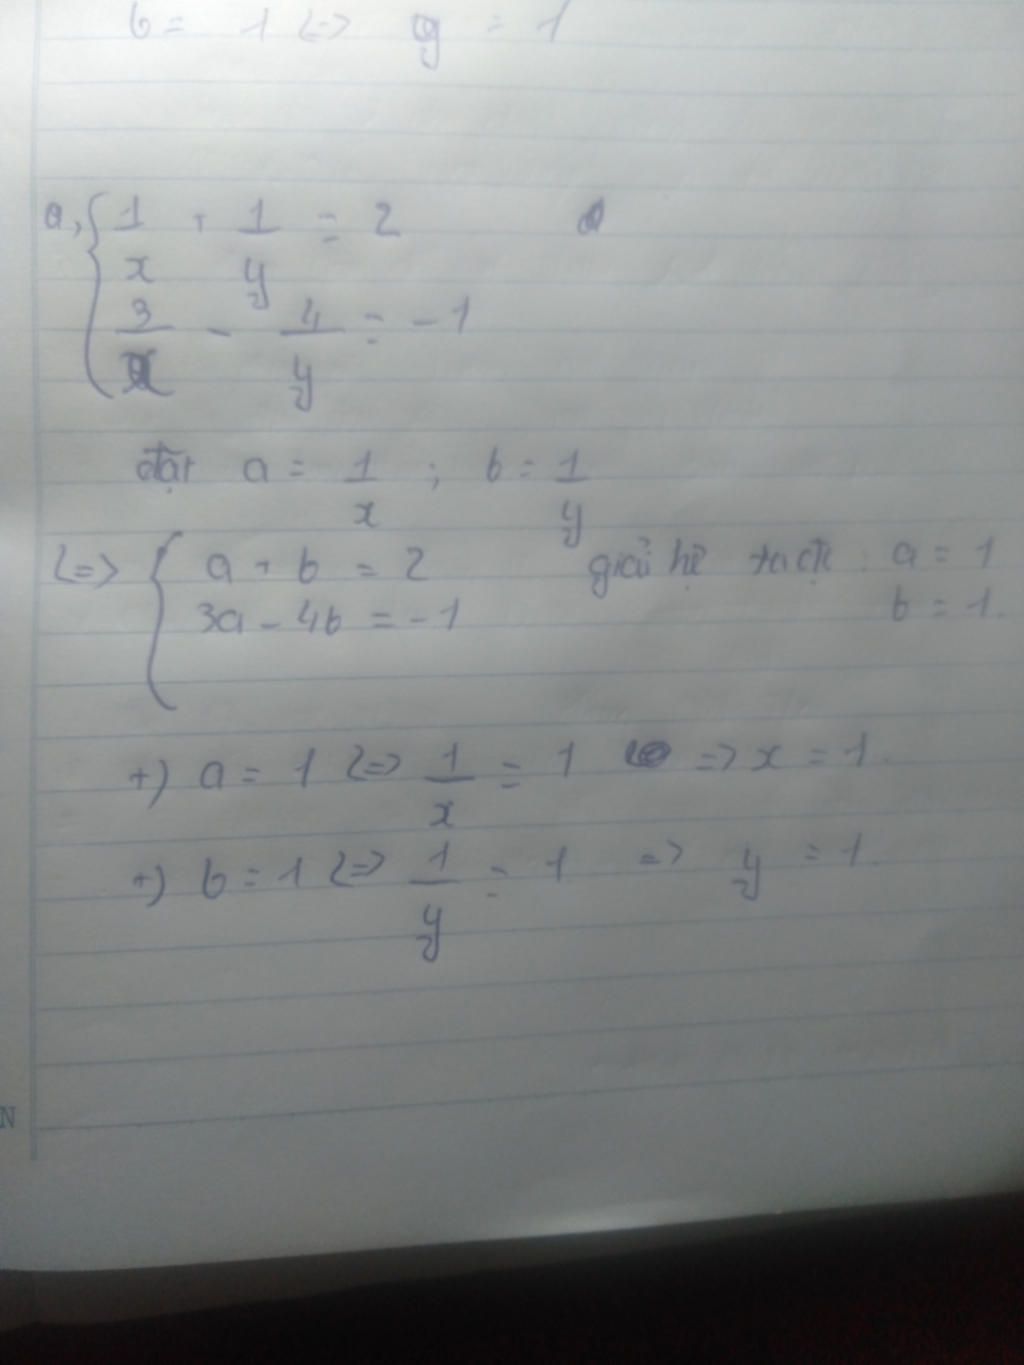 b = 1 <=> y = 1
a, { 1/x + 1/y = 2
3/x - 4/y = -1
đặt a = 1/x ; b = 1/y
<=> { a + b = 2 giải hệ ta đc : a = 1
3a - 4b = -1 b = 1.
+) a = 1 <=> 1/x = 1 => x = 1.
+) b = 1 <=> 1/y = 1 => y = 1.
N